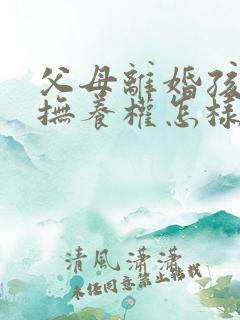 父母離婚孩
撫養權怎樣
清風瀟瀟
未經同意禁止轉載